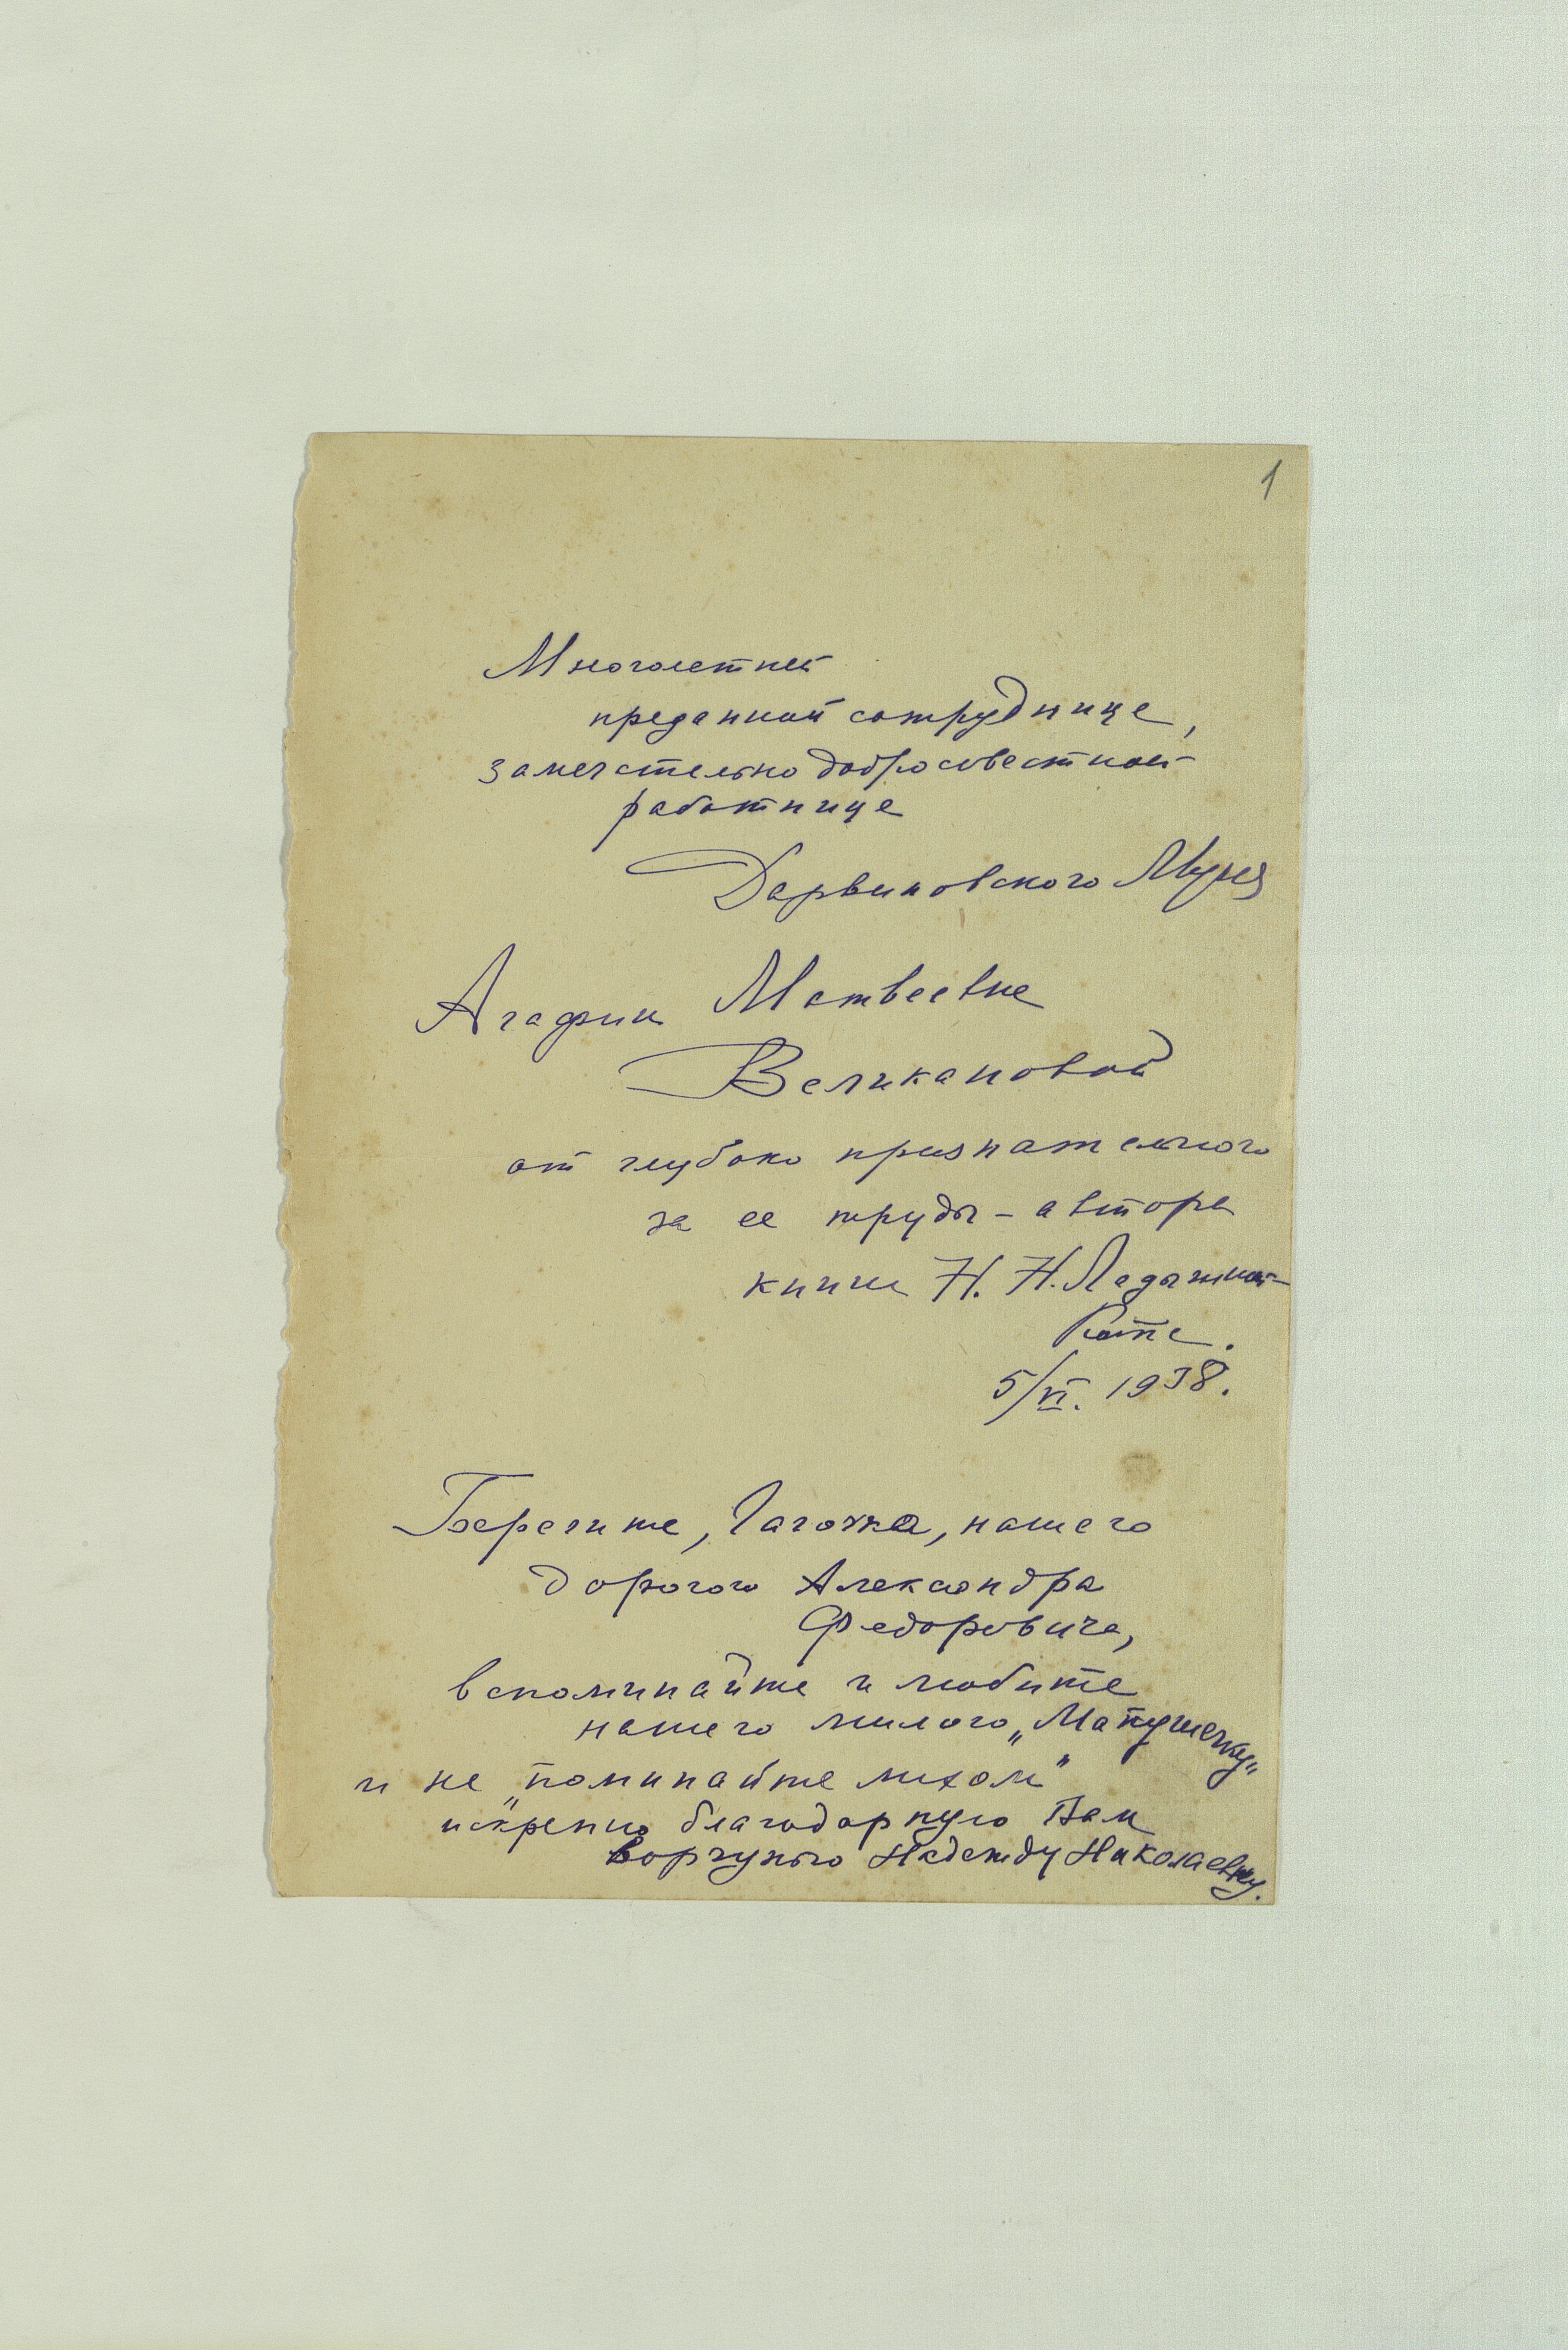 1
Многолетней
преданной сотруднице,
замечательно добросовестной
работнице
Дарвиновского Музея
Агафии Матвеевне
Великановой
от глубоко признательного
за ее труды – автора
книги Н. Н. Ладыгиной-
Котс.
5/VI. 1938.
Берегите, Гагочка, нашего
дорогого Александра
Федоровича,
вспоминайте и любите
нашего милого
и не „поминайте лихом"
искренно благодарную Вам
ворчунью Надежду Николаевну.